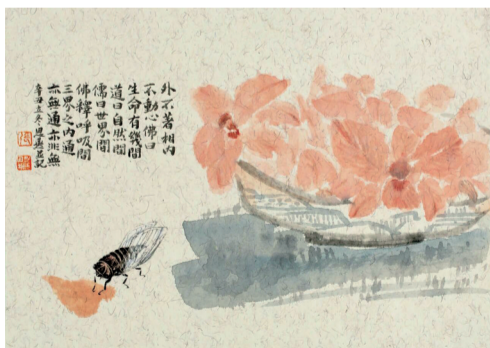 外不著相内
不動心佛曰
生命有幾間
道曰自然間
儒曰世界間
佛釋呼吸間
三界之内通
亦無通亦非無
辛丑立冬